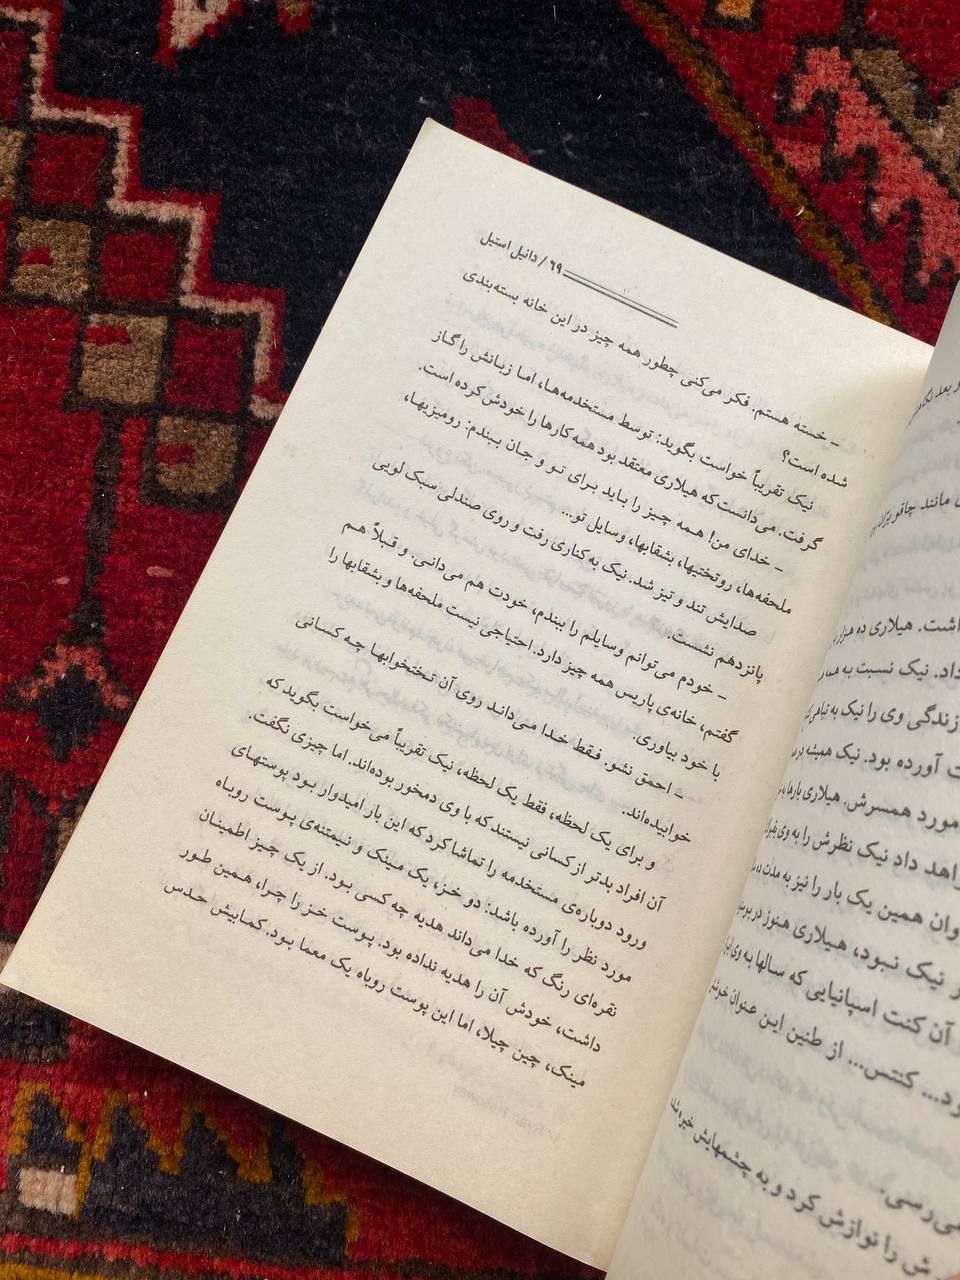 ۶۹ / دانیل استیل
– خسته هستم. فکر می‌کنی چطور همه چیز در این خانه بسته‌بندی
شده است؟
نیک تقریباً خواست بگوید: توسط مستخدمه‌ها، اما زبانش را گاز
گرفت. می‌دانست که هیلاری معتقد بود همه کارها را خودش کرده است.
– خدای من! همه چیز را باید برای تو و جان ببندم: رومیزیها،
ملحفه‌ها، روتختیها، بشقابها، وسایل تو...
صدایش تند و تیز شد. نیک به کناری رفت و روی صندلی سبک لویی
پانزدهم نشست.
– خودم می‌توانم وسایلم را ببندم، خودت هم می‌دانی. و قبلاً هم
گفتم، خانه‌ی پاریس همه چیز دارد. احتیاجی نیست ملحفه‌ها و بشقابها را
با خود بیاوری.
– احمق نشو. فقط خدا می‌داند روی آن تختخوابها چه کسانی
خوابیده‌اند.
و برای یک لحظه، فقط یک لحظه، نیک تقریباً می‌خواست بگوید که
آن افراد بدتر از کسانی نیستند که با وی دمخور بوده‌اند. اما چیزی نگفت.
ورود دوباره‌ی مستخدمه را تماشا کرد که این بار امیدوار بود پوستهای
مورد نظر را آورده باشد: دو خز، یک مینک و نیمتنه‌ی پوست روباه
نقره‌ای رنگ که خدا می‌داند هدیه چه کسی بود. از یک چیز اطمینان
داشت، خودش آن را هدیه نداده بود. پوست خز را چرا، همین طور
مینک، چین چیلا، اما این پوست روباه یک معما بود. کمابیش حدس
و بعد
مانند چاقو
هیلاری ده هزار
داد. نیک نسبت به همه
زندگی وی را نیک به
آورده بود. نیک همیشه
مورد همسرش. هیلاری بارها
داد نیک نظرش را به وی
همین یک بار را نیز به مدت
نیک نبود، هیلاری هنوز در
آن کنت اسپانیایی که سالها به وی
کنتس... از طنین این عنوان
می‌رسی.
را نوازش کرد و به چشمهایش خیره